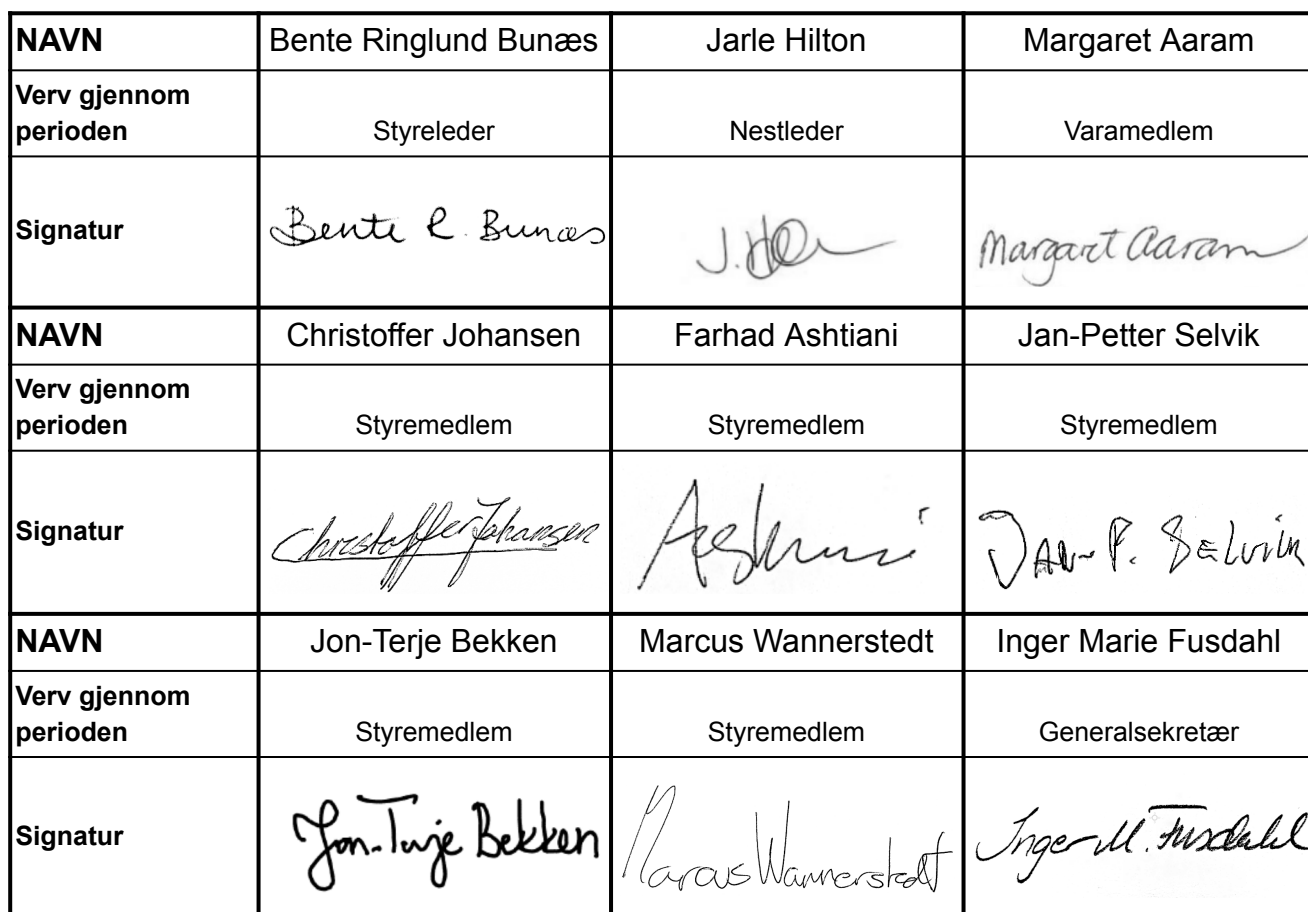 NAVN Bente Ringlund Bunæs Jarle Hilton Margaret Aaram
Verv gjennom
perioden Styreleder Nestleder Varamedlem
Signatur Bente R. Bunæs J. Margaret Aaram
NAVN Christoffer Johansen Farhad Ashtiani Jan-Petter Selvik
Verv gjennom
perioden Styremedlem Styremedlem Styremedlem
Signatur Christoffer Johansen JAN-P. SELVIK
NAVN Jon-Terje Bekken Marcus Wannerstedt Inger Marie Fusdahl
Verv gjennom
perioden Styremedlem Styremedlem Generalsekretær
Signatur Jon-Terje Bekken Marcus Wannerstedt Inger M. Fusdahl